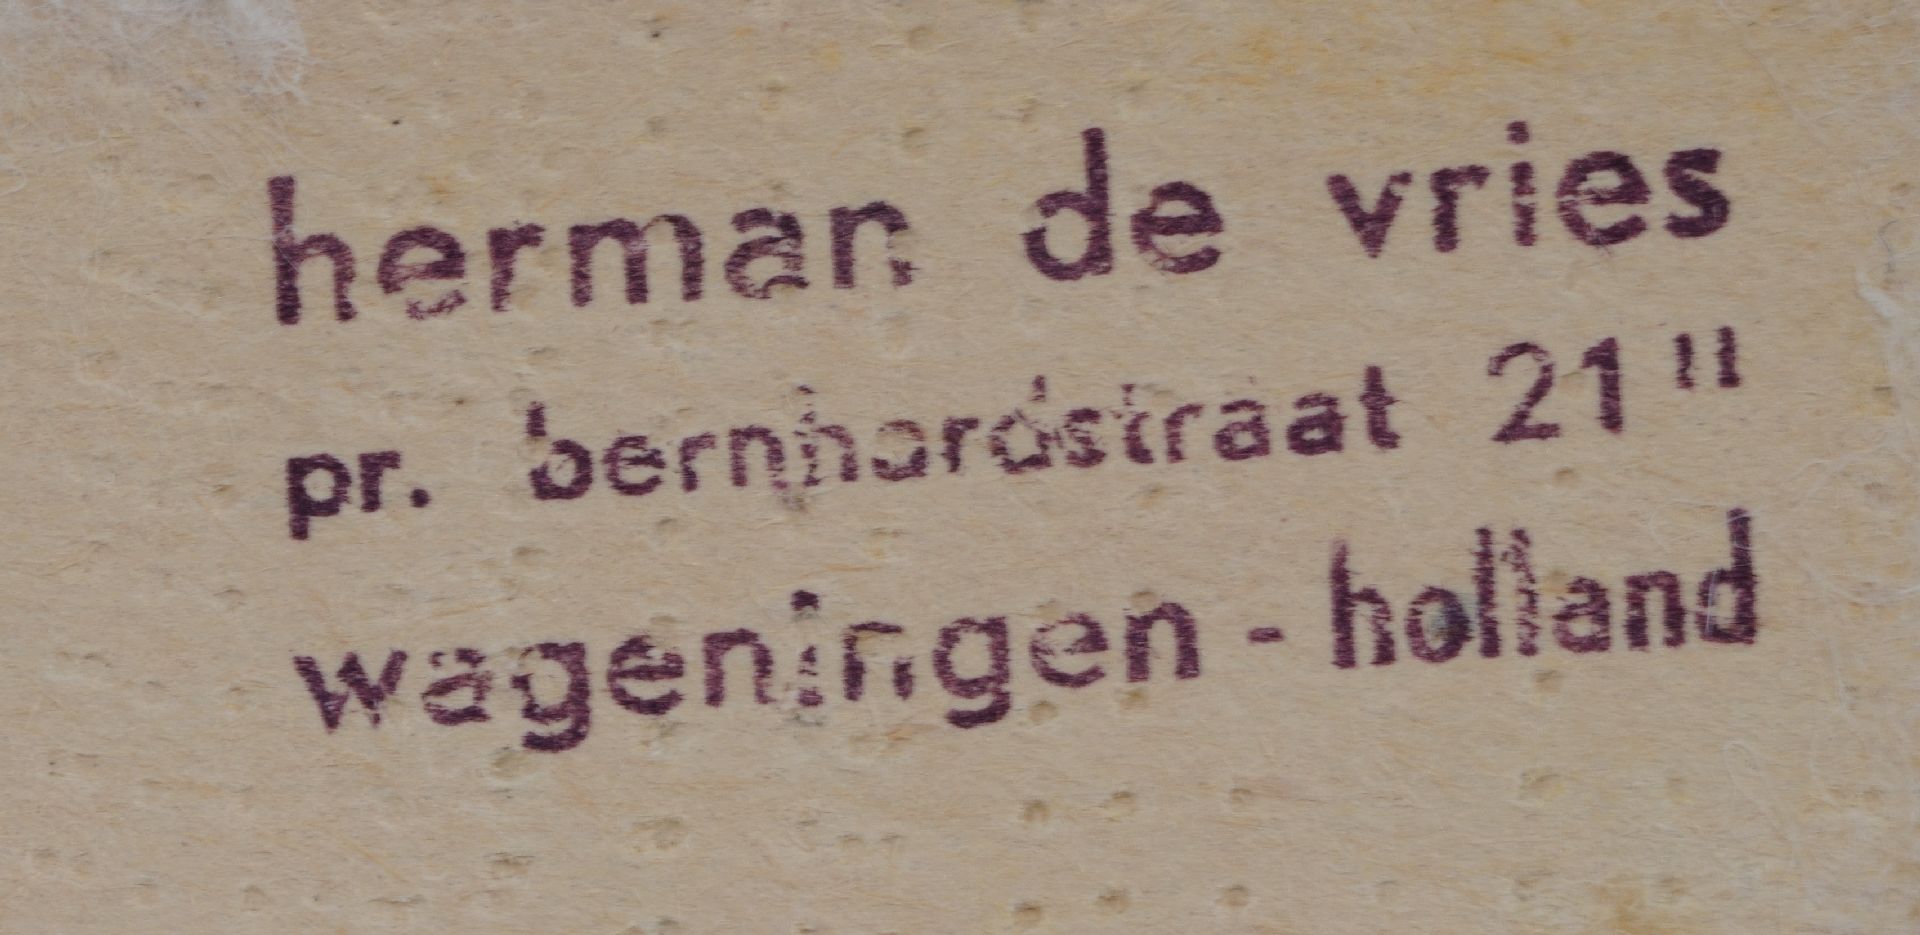 herman de vries
pr. bernhardstraat 21"
wageningen - holland